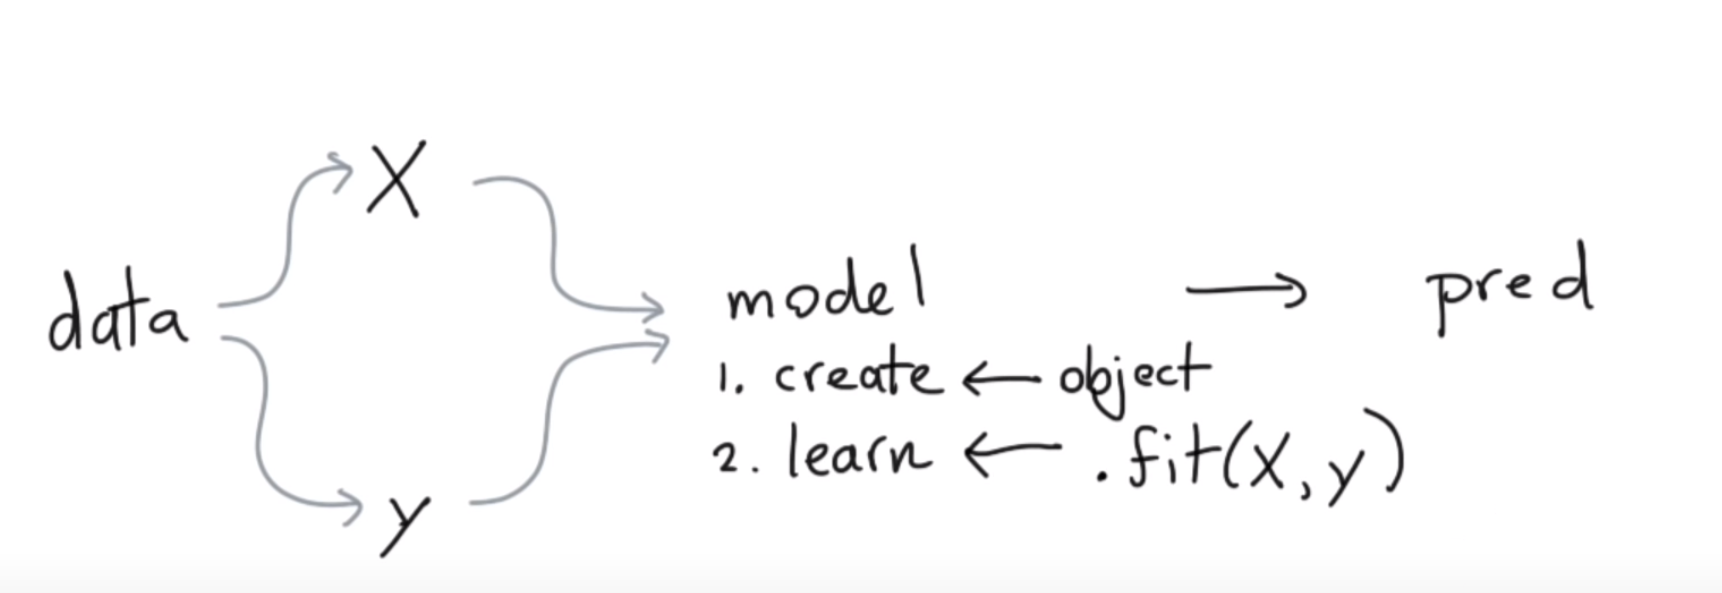 data
X
y
model → pred
1. create ← object
2. learn ← .fit(X, y)